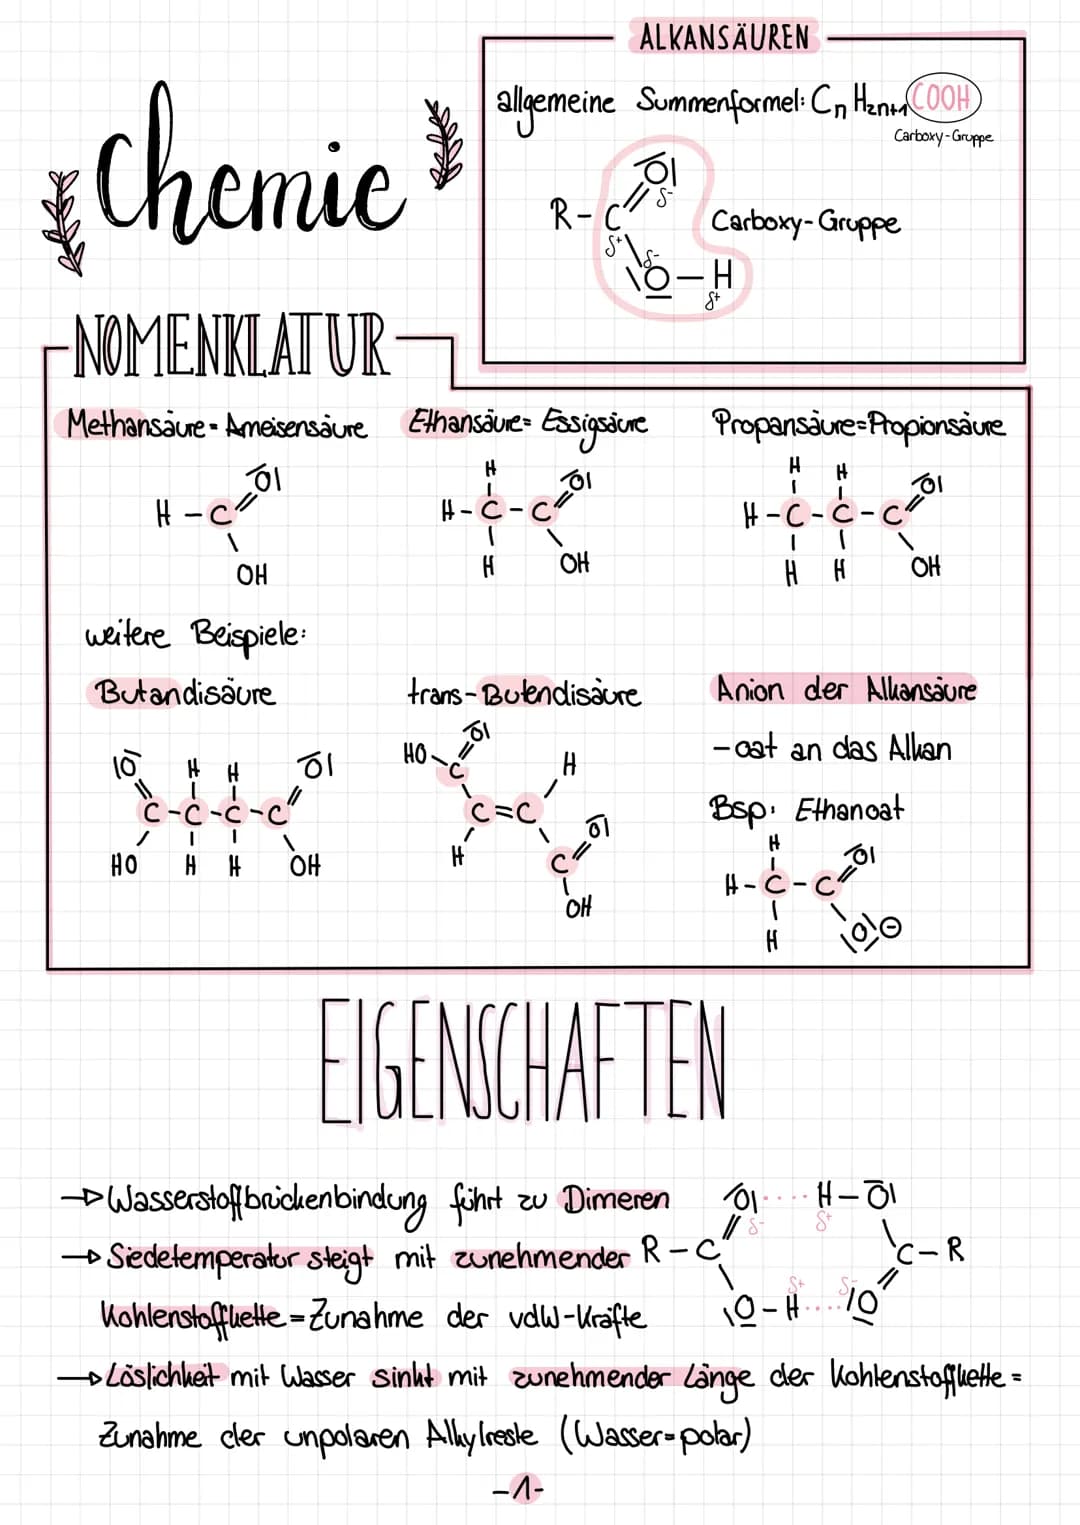 Chemie
ALKANSÄUREN
allgemeine Summenformel: Cn H2n+1 COOH
Carboxy-Gruppe
R-C
O
δ-
δ+
δ-
O-H
δ+
Carboxy-Gruppe
NOMENKLATUR
Methansäure = Ameisensäure
H-C
O
OH
Ethansäure = Essigsäure
H
O
H-C-C
H
OH
Propansäure=Propionsäure
H H
O
H-C-C-C
H H
OH
weitere Beispiele:
Butandisäure
O H H O
C-C-C-C
HO H H OH
trans-Butendisäure
HO
O
C
H
C=C
O
H
C
OH
Anion der Alkansäure
-oat an das Alkan
Bsp: Ethanoat
H
O
H-C-C
H
O⊖
EIGENSCHAFTEN
→ Wasserstoffbrückenbindung führt zu Dimeren
→ Siedetemperatur steigt mit zunehmender
Kohlenstoffkette = Zunahme der vdW-Kräfte
O····H-O
δ- δ+
R-C
C-R
δ+ δ-
O-H····O
→ Löslichkeit mit Wasser sinkt mit zunehmender Länge der Kohlenstoffkette =
Zunahme der unpolaren Alkylreste (Wasser=polar)
-1-